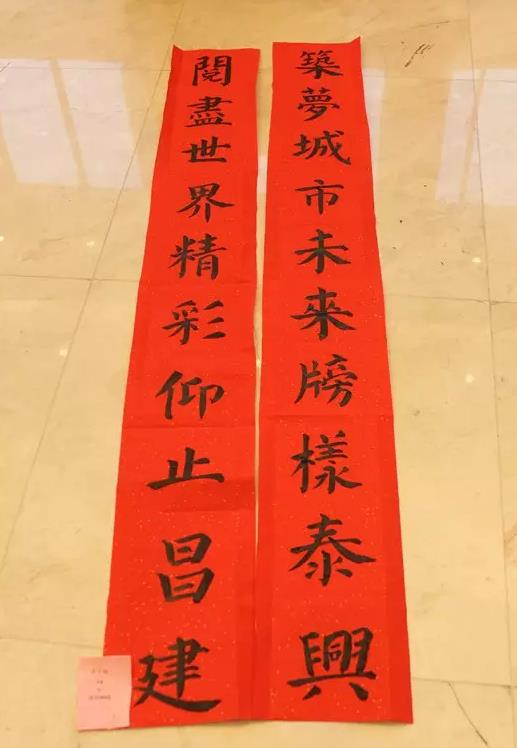 築夢城市未來牓樣泰興
閱盡世界精彩仰止昌建